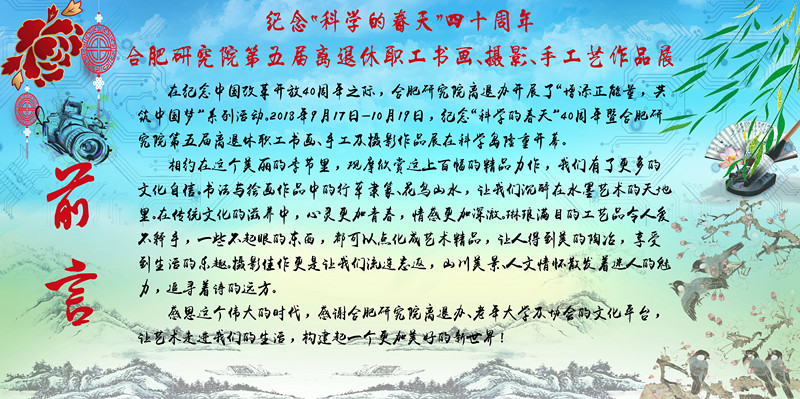 纪念“科学的春天”四十周年
合肥研究院第五届离退休职工书画、摄影、手工艺作品展
前言
在纪念中国改革开放40周年之际，合肥研究院离退办开展了“增添正能量，共
筑中国梦”系列活动。2018年9月17日-10月19日，纪念“科学的春天”40周年暨合肥研
究院第五届离退休职工书画、手工及摄影作品展在科学岛隆重开幕。
相约在这个美丽的季节里，观摩欣赏这上百幅的精品力作，我们有了更多的
文化自信。书法与绘画作品中的行草隶篆、花鸟山水，让我们沉醉在水墨艺术的天地
里。在传统文化的滋养中，心灵更加青春，情感更加深邃。琳琅满目的工艺品令人爱
不释手，一些不起眼的东西，都可以点化成艺术精品，让人得到美的陶冶，享受
到生活的乐趣。摄影佳作更是让我们流连忘返，山川美景、人文情怀散发着迷人的魅
力，追寻着诗的远方。
感恩这个伟大的时代，感谢合肥研究院离退办、老年大学及协会的文化平台，
让艺术走进我们的生活，构建起一个更加美好的新世界！